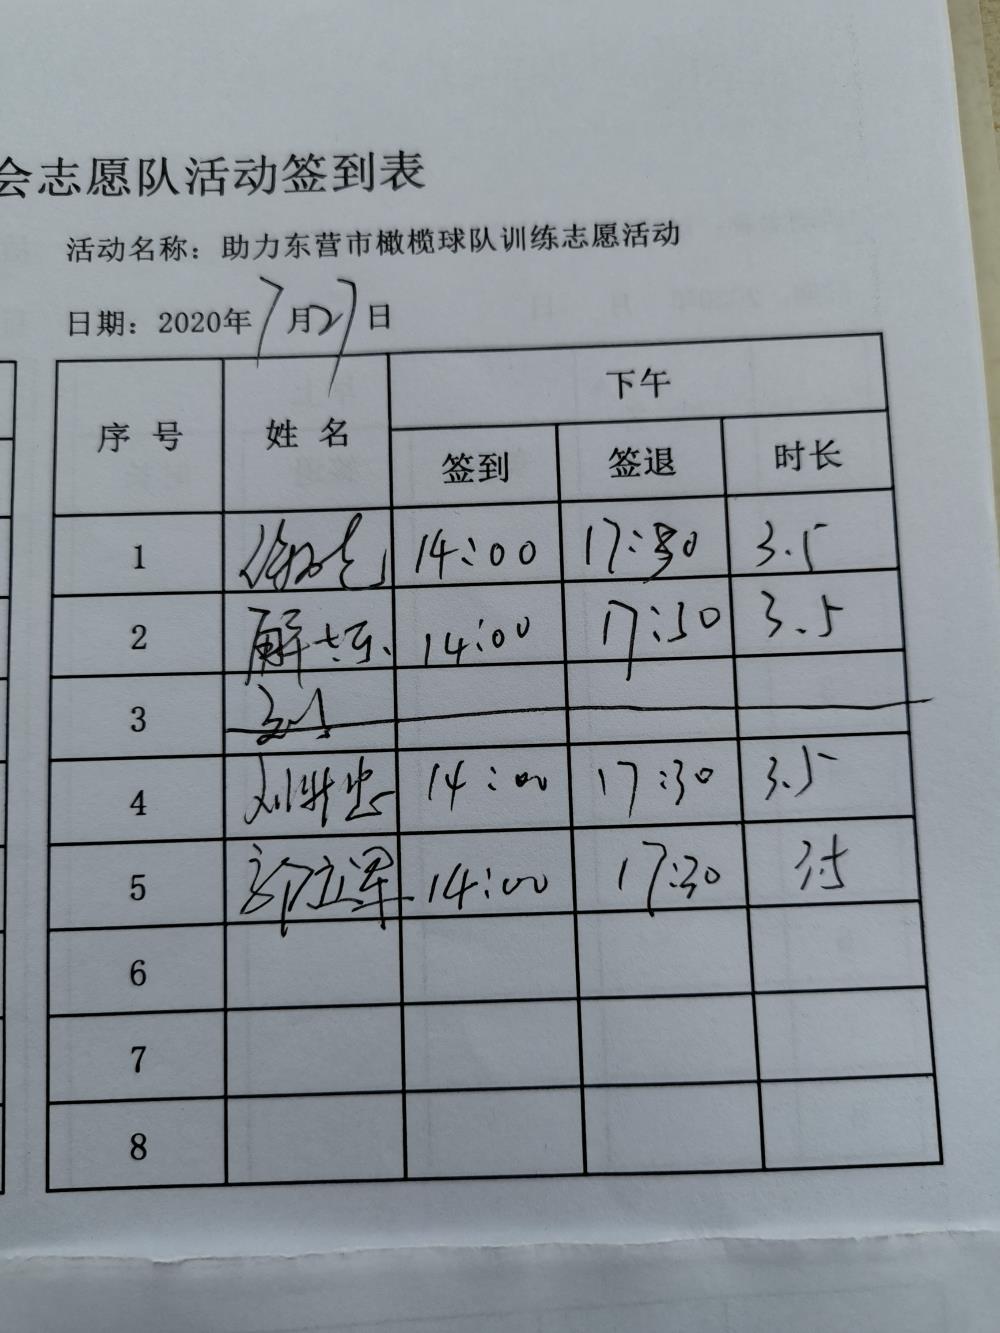 会志愿队活动签到表
活动名称：助力东营市橄榄球队训练志愿活动
日期：2020年7月27日
序 号 姓 名 下午
签到 签退 时长
1 14:00 17:30 3.5
2 14:00 17:30 3.5
3
4 14:00 17:30 3.5
5 郭立军 14:00 17:30 3.5
6
7
8